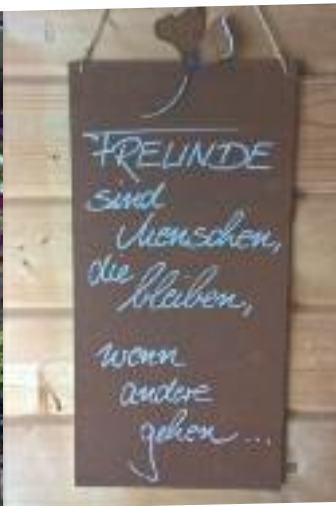 FREUNDE
sind
Menschen,
die
bleiben,
wenn
andere
gehen...